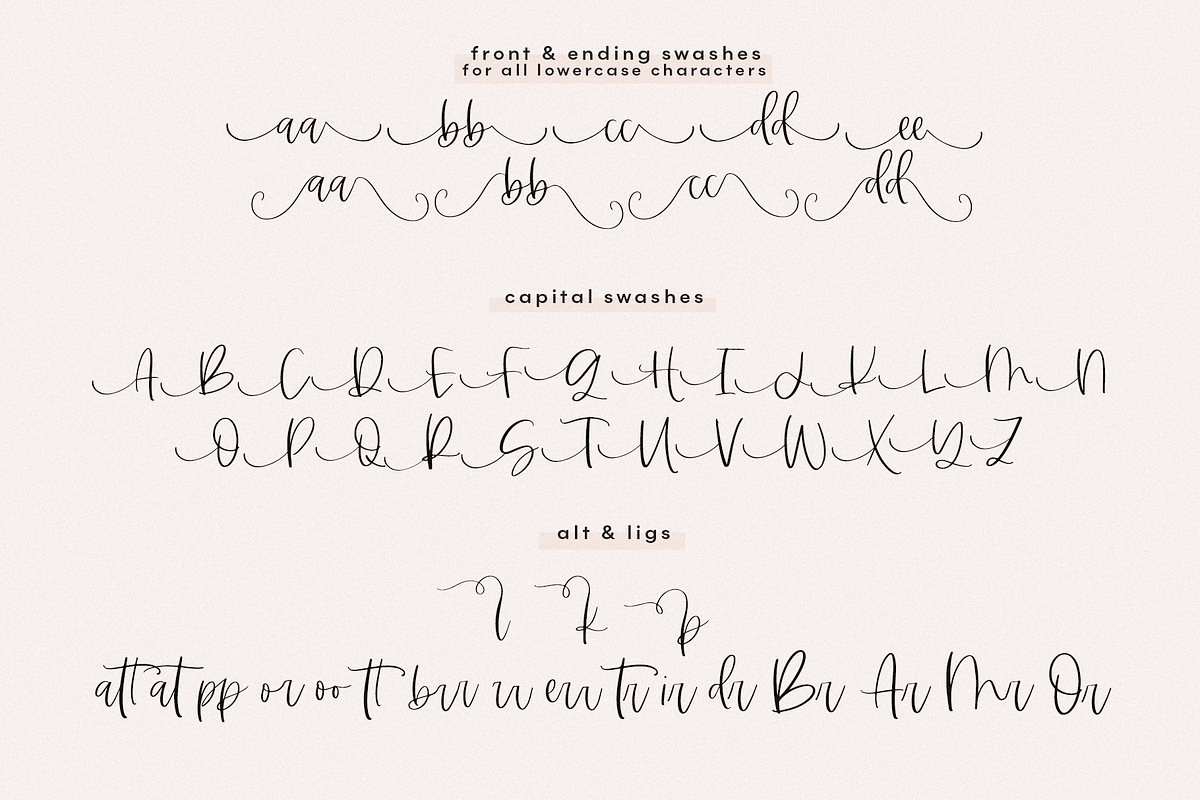 front & ending swashes
for all lowercase characters
aa bb cc dd ee
aa bb cc dd
capital swashes
A B C D E F G H I J K L M N
O P Q R S T U V W X Y Z
alt & ligs
l k p
att at pp or oo tt brr rr err tr ir dr Br Ar Mr Or